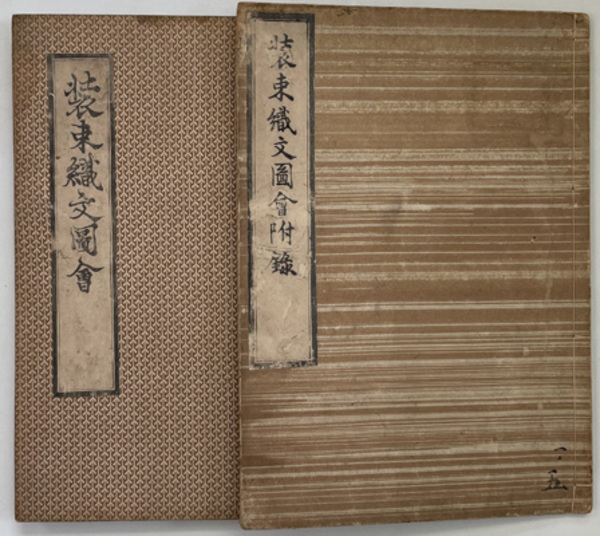 装束織文圖會
装束織文圖會附録
一、五